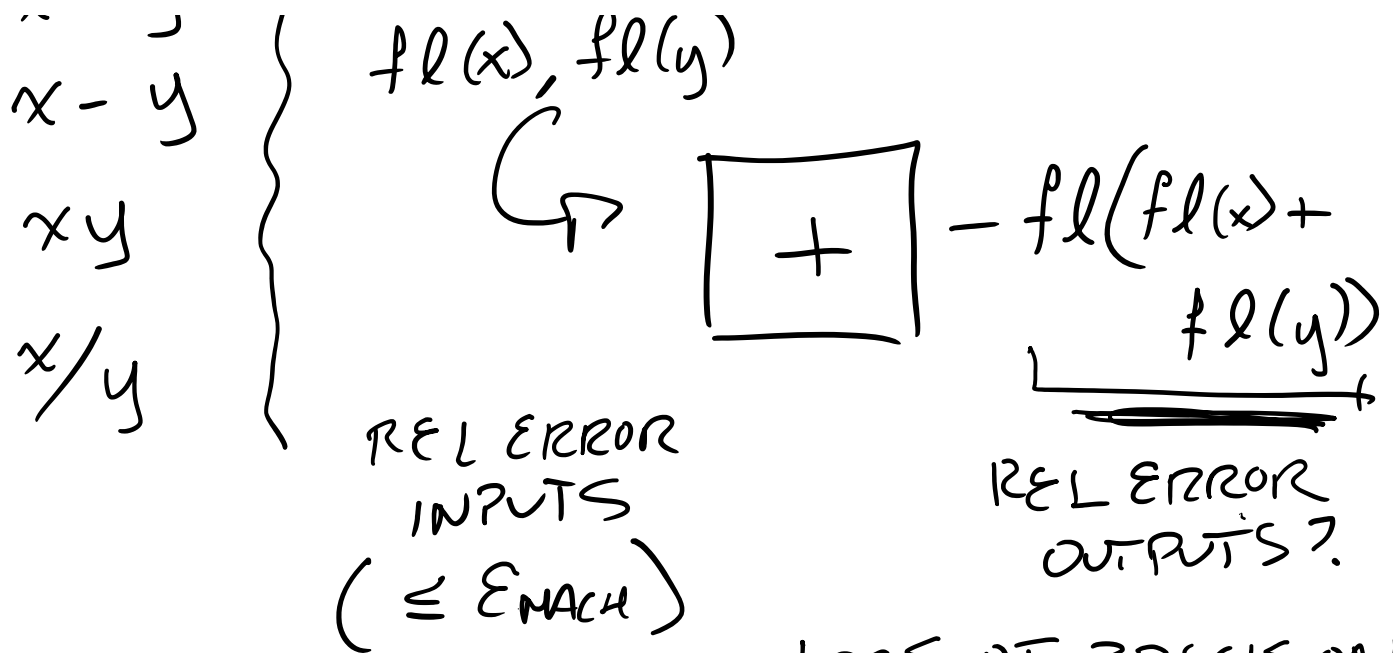 x - y
xy
x/y
fl(x), fl(y)
+
- fl(fl(x) +
fl(y))
REL ERROR
INPUTS
(≤ εMACH)
REL ERROR
OUTPUTS?